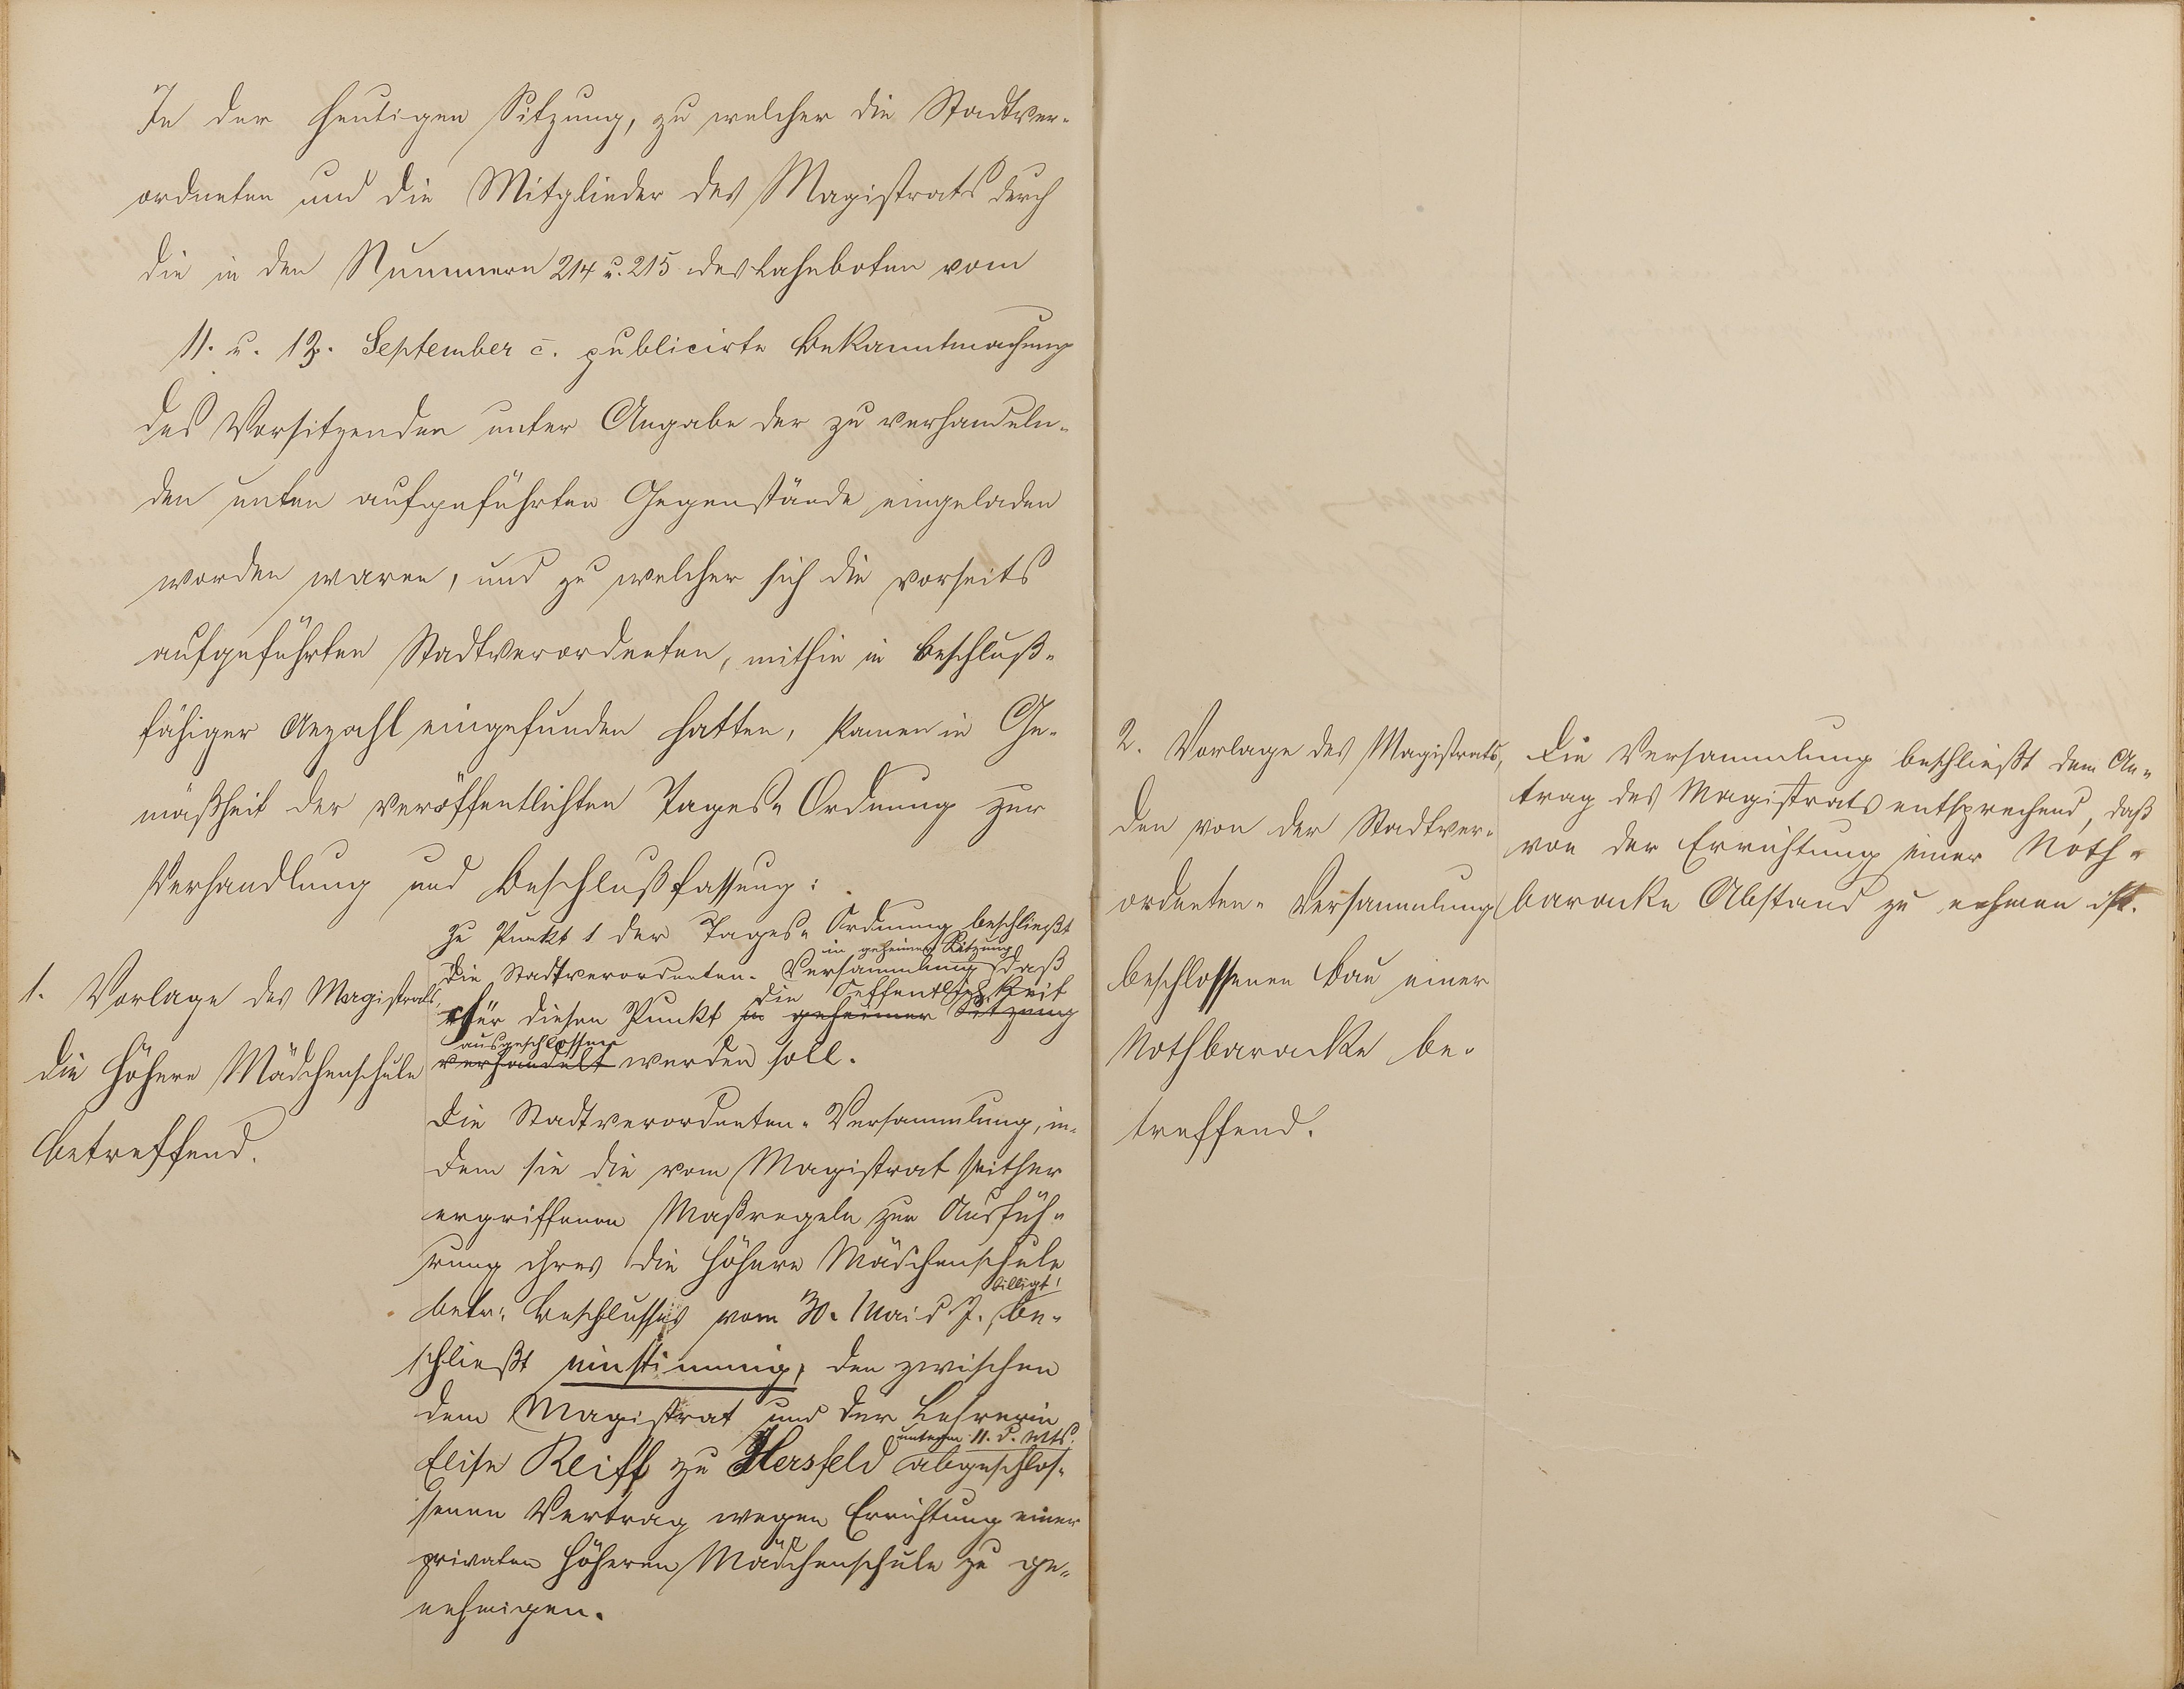 In der heutigen Sitzung, zu welcher die Stadtver-
ordneten und die Mitglieder des Magistrats durch
die in den Nummern 214 u. 215 des Lahnboten vom
11. u. 12. September c. publicirte Bekanntmachung
des Vorsitzenden unter Angabe der zu verhandeln-
den unten aufgeführten Gegenstände eingeladen
worden waren, und zu welcher sich die vorseits
aufgeführten Stadtverordneten, mithin in beschluß-
fähiger Anzahl eingefunden hatten, kamen in Ge-
mäßheit der veröffentlichten Tages-Ordnung zur
Verhandlung und Beschlußfassung:
1. Vorlage des Magistrats,
die höhere Mädchenschule
betreffend.
Zu Punkt 1 der Tages-Ordnung beschließt
in geheimer Sitzung
die Stadtverordneten-Versammlung daß
die Oeffentlichkeit
für diesen Punkt in geheimer Sitzung
ausgeschlossen
verhandelt werden soll.
Die Stadtverordneten-Versammlung, in-
dem sie die vom Magistrat seither
ergriffenen Maßregeln zur Ausfüh-
rung ihres die höhere Mädchenschule
billigt,
betr. Beschlusses vom 30. Mai d. J., be-
schließt einstimmig, den zwischen
dem Magistrat und der Lehrerin
unterm 11. d. Mts.
Elise Reiff zu Hersfeld abgeschlos-
senen Vertrag wegen Errichtung einer
privaten höheren Mädchenschule zu ge-
nehmigen.
2. Vorlage des Magistrats,
den von der Stadtver-
ordneten-Versammlung
beschlossenen Bau einer
Nothbaracke be-
treffend.
Die Versammlung beschließt dem An-
trag des Magistrats entsprechend, daß
von der Errichtung einer Noth-
baracke Abstand zu nehmen ist.